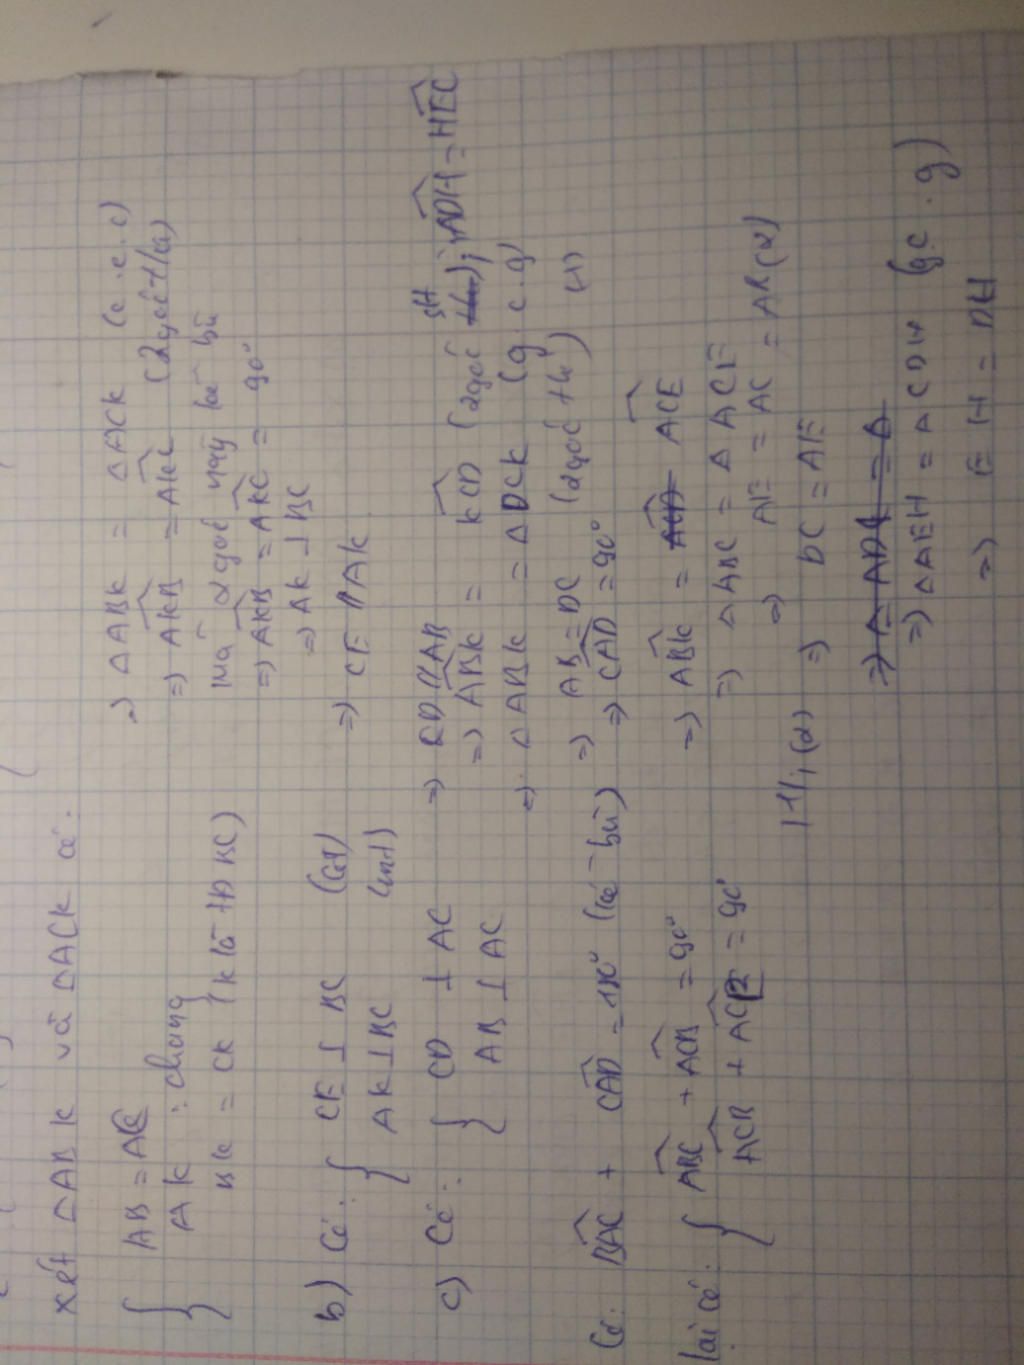 xét △ABK và △ACK có:
{ AB = AC
AK : chung
BK = CK (K là TĐ BC) }
=> △ABK = △ACK (c.c.c)
=> AKB = AKC (2 góc t/ư)
mà 2 góc này kề bù
=> AKB = AKC = 90°
=> AK ⊥ BC
b) Có: { CE ⊥ BC (GT)
AK ⊥ BC (cmt) }
=> CE // AK
c) Có: { CD ⊥ AC
AB ⊥ AC }
=> CD // AB
=> ABK = KCD (2 góc slt); ADH = HEC
=> △ABK = △DCK (g.c.g)
=> AB = DC (2 góc t/ư) (1)
Có: BAC + CAD = 180° (kề bù) => CAD = 90°
lại có: { ABC + ACB = 90°
ACB + ACE = 90° }
=> ABK = ACE
=> △ABC = △ACE
=> AE = AC = AB (2)
(1); (2) => DC = AE
=> △AEH = △CDH (g.c.g)
=> EH = DH